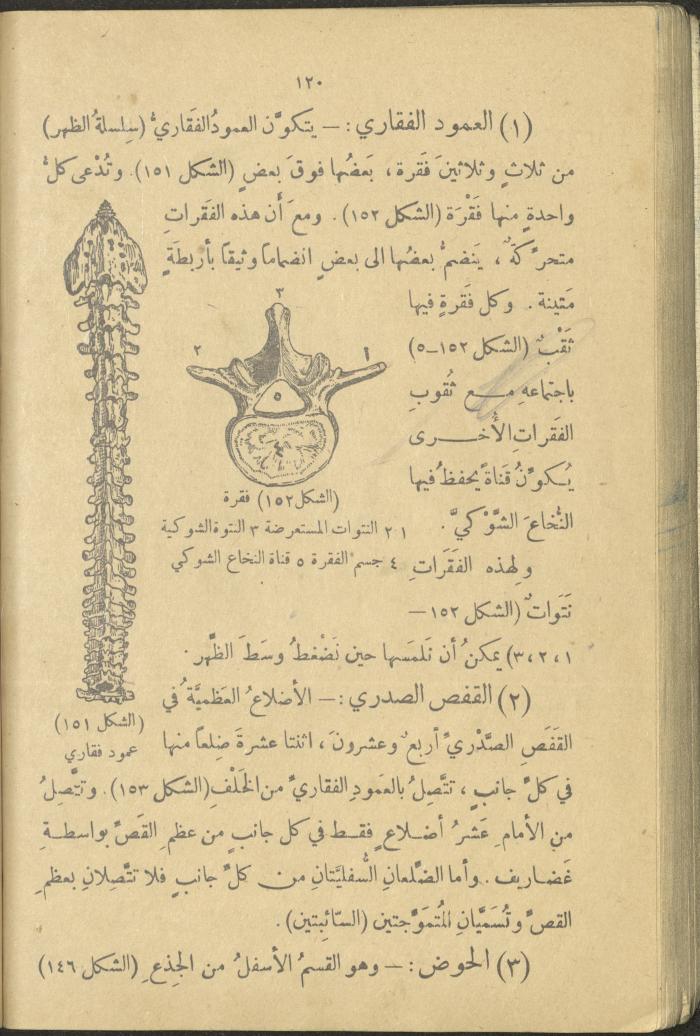 ١٢٠
(١) العمود الفقاري : — يتكوَّن العمودُ الفَقاريُّ (سِلسلةُ الظهر)
من ثلاثٍ وثلاثينَ فَقرة ، بَعضُها فوقَ بعضٍ (الشكل ١٥١) . وتُدْعى كلُّ
واحدةٍ منها فَقْرَة (الشكل ١٥٢) . ومعَ أَن هذه الفَقَراتِ
متحرِّكَةٌ ، يَنضمُّ بعضُها الى بعضٍ انضماماً وثيقاً بأربطَةٍ
مَتِينة . وكل فَقَرةٍ فيها
ثَقْبٌ (الشكل ١٥٢—٥)
باجتماعهِ مع ثُقوبِ
الفَقراتِ الأُخرى
يُكوِّنُ قَناةً يحفظُ فيها
النُّخاعَ الشَّوْكيَّ .
ولهذه الفَقَراتِ
نَتَواتٌ (الشكل ١٥٢—
١ ، ٢ ، ٣) يمكنُ أن نَلمَسَها حين نَضْغطُ وسَطَ الظَّهر .
٣
٢
١
٥
٤
(الشكل ١٥٢) فقرة
١ ٢ النتوات المستعرضة ٣ النتوة الشوكية
٤ جسم الفقرة ٥ قناة النخاع الشوكي
(الشكل ١٥١)
عمود فقاري
(٢) القفص الصدري : — الأضلاعُ العَظميَّةُ في
القَفَصِ الصَّدْريِّ أربعٌ وعشرونَ ، اثنتا عشرةَ ضِلعاً منها
في كلِّ جانبٍ ، تتَّصِلُ بالعَمودِ الفقاريِّ من الخَلْفِ (الشكل ١٥٣) . وتتَّصِلُ
من الأمامِ عَشْرُ أضلاعٍ فقط في كل جانبٍ من عظمِ القَصِّ بواسطةِ
غَضاريف . وأما الضِّلعانِ السُّفليَّتانِ من كلِّ جانبٍ فلا تتَّصِلانِ بعظمِ
القصِّ وتُسَمَّيانِ المُتموِّجتين (السّائبِتين) .
(٣) الحوض : — وهو القسمُ الأسفلُ من الجِذعِ (الشكل ١٤٦)